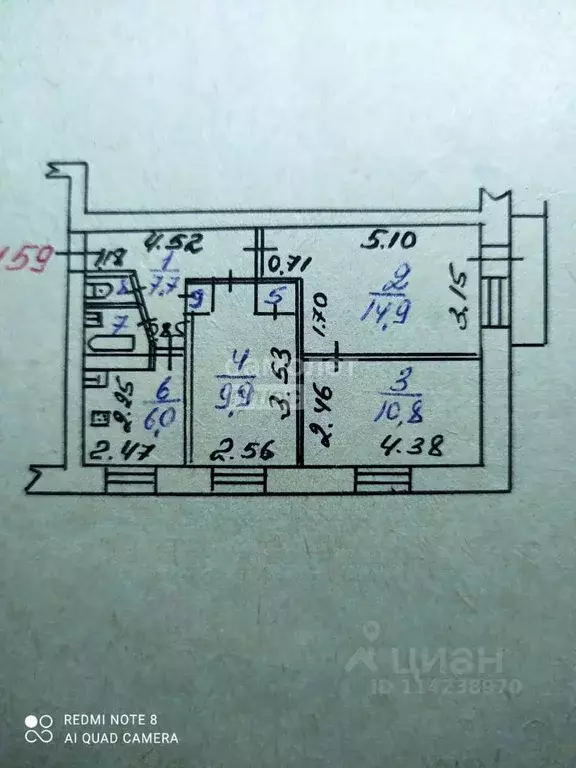 159
4.52
5.10
1,18
1
7,7
0,71
2
14,9
3.15
8
9
5
7
1.70
САМОЛЕТ
4
9,9
3.53
3
10,8
2.46
6
6,0
2.25
2.47
2.56
4.38
циан
ID 114238970
REDMI NOTE 8
AI QUAD CAMERA